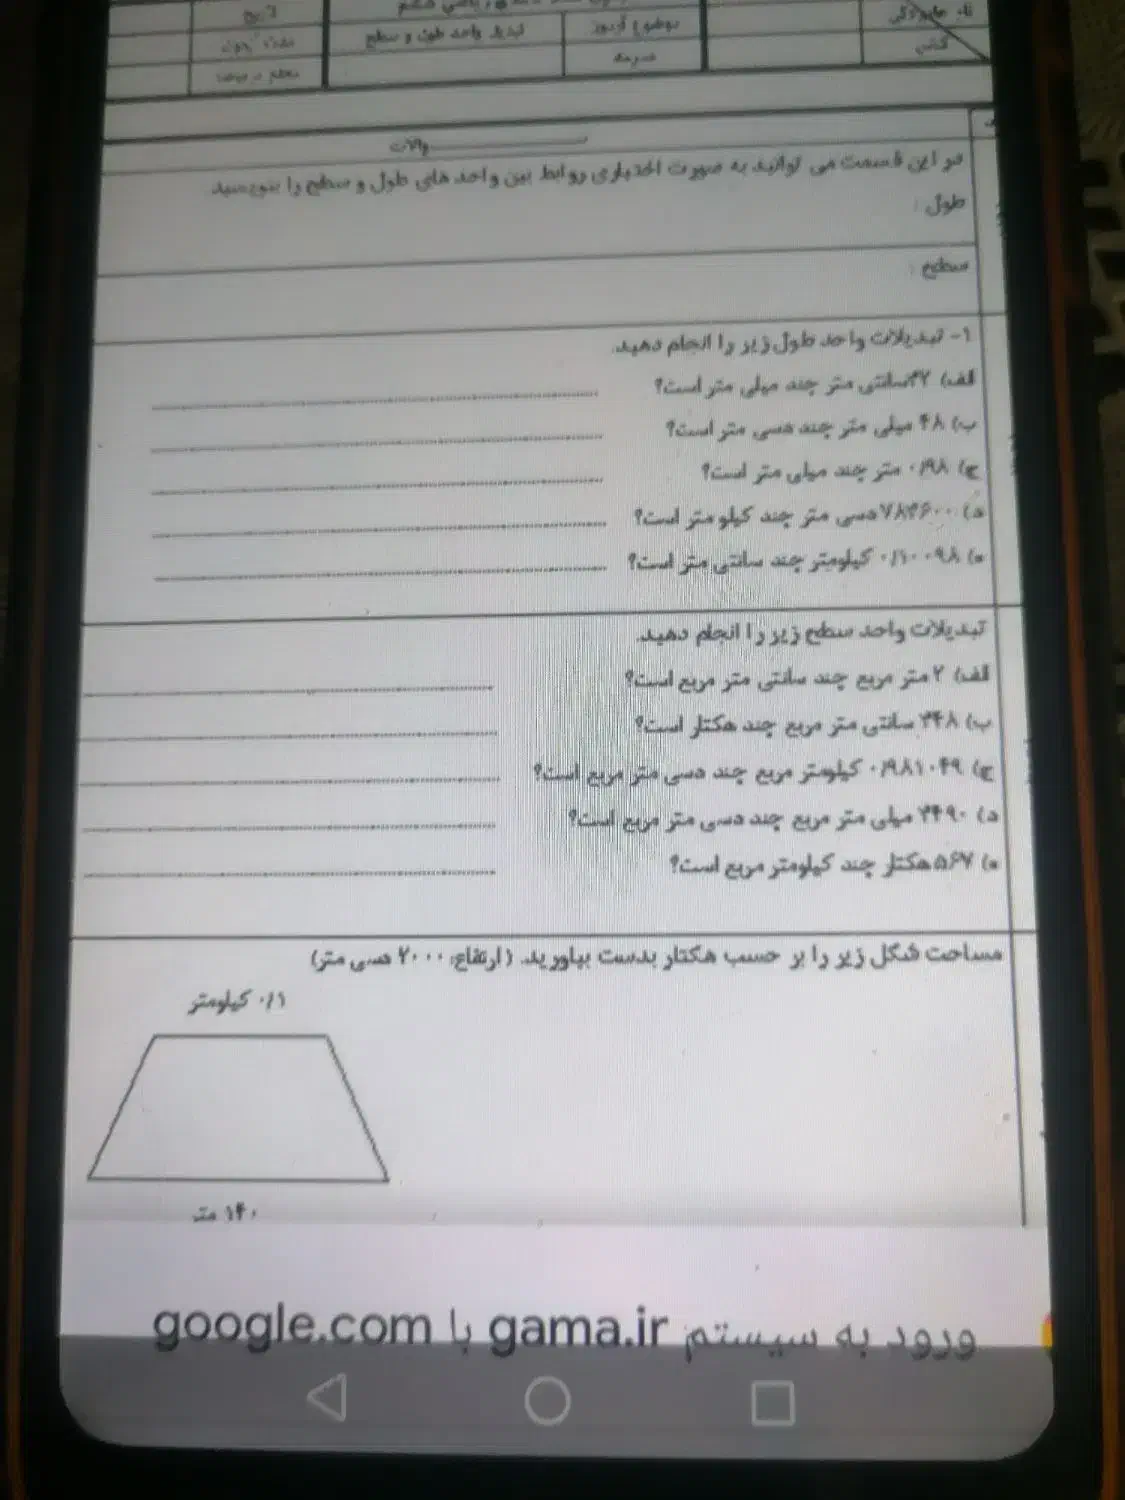 نام خانوادگی
تاریخ
کلاس
موضوع آزمون
تبدیل واحد طول و سطح
مدرسه
در این قسمت می توانید به صورت اختیاری روابط بین واحد های طول و سطح را بنویسید
طول :
سطح :
۱- تبدیلات واحد طول زیر را انجام دهید.
الف) ۴۲سانتی متر چند میلی متر است؟
ب) ۴۸ میلی متر چند دسی متر است؟
ج) ۰/۹۸ متر چند میلی متر است؟
د) ۷۸۴۶۰۰دسی متر چند کیلو متر است؟
ه) ۰/۱۰۰۹۸ کیلومتر چند سانتی متر است؟
تبدیلات واحد سطح زیر را انجام دهید.
الف) ۲ متر مربع چند سانتی متر مربع است؟
ب) ۳۴۸ سانتی متر مربع چند هکتار است؟
ج) ۰/۹۸۱۰۴۹ کیلومتر مربع چند دسی متر مربع است؟
د) ۳۴۹۰ میلی متر مربع چند دسی متر مربع است؟
ه) ۵۶۷هکتار چند کیلومتر مربع است؟
مساحت شکل زیر را بر حسب هکتار بدست بیاورید. (ارتفاع: ۲۰۰۰ دسی متر)
۰/۱ کیلومتر
۱۴۰ متر
ورود به سیستم gama.ir با google.com